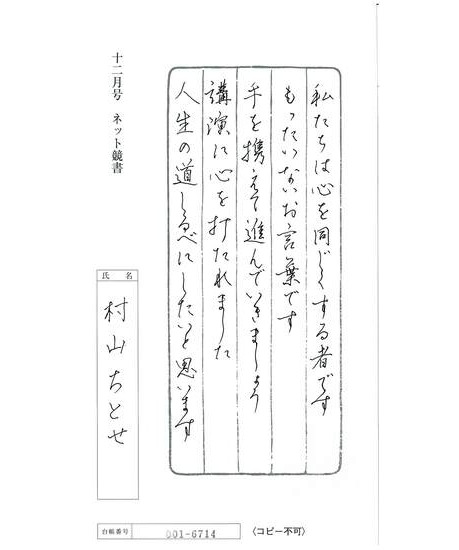 十二月号 ネット競書
私たちは心を同じくする者です
もったいないお言葉です
手を携えて進んでいきましょう
講演に心を打たれました
人生の道しるべにしたいと思います
氏名
村山ちとせ
台帳番号
001-6714
〈コピー不可〉